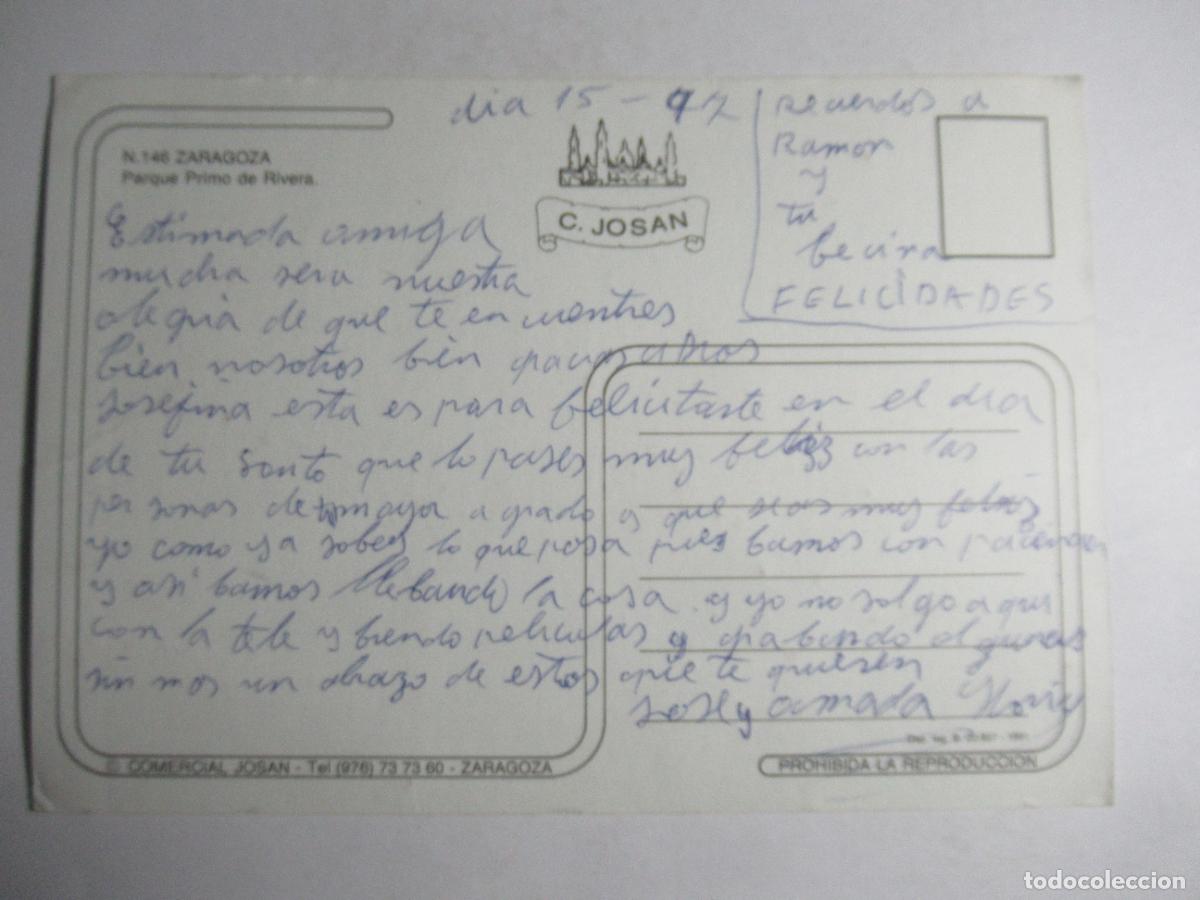 dia 15-
N.146 ZARAGOZA
Parque Primo de Rivera.
C. JOSAN
recuerdos a
Ramon
y
tu
becina
FELICIDADES
Estimada amiga
mucha sera nuestra
alegria de que te encuentres
bien nosotros bien
Josefina esta es para felicitarte en el dia
de tu santo que lo pases muy feliz con las
personas de mayor agrado y que seas muy feliz
yo como ya sabes lo que pasa pues bamos con
y asi bamos llebando la cosa y yo no salgo aqui
con la tele y biendo peliculas y grabendo algunas
sin mas un abrazo de estos que te quieren
Jose y amada
Dep. leg. B.
© COMERCIAL JOSAN - Tel (976) 73 73 60 - ZARAGOZA
PROHIBIDA LA REPRODUCCION
todocoleccion